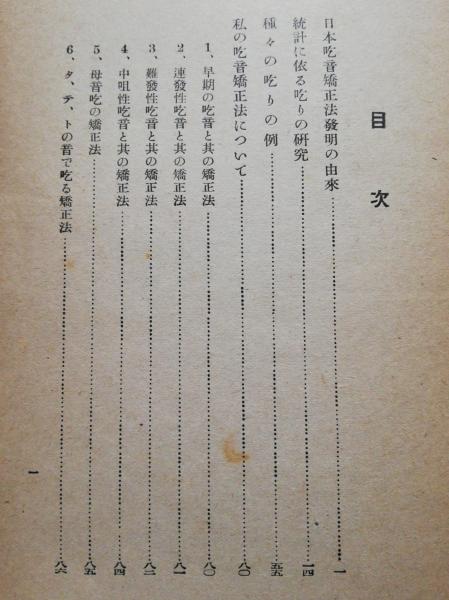 目次
日本吃音矯正法發明の由來……一
統計に依る吃りの硏究……一四
種々の吃りの例……五五
私の吃音矯正法について……八〇
1、早期の吃音と其の矯正法……八〇
2、連發性吃音と其の矯正法……八一
3、難發性吃音と其の矯正法……八二
4、中咀性吃音と其の矯正法……八四
5、母音吃の矯正法……八五
6、タ、テ、トの音で吃る矯正法……八六
一